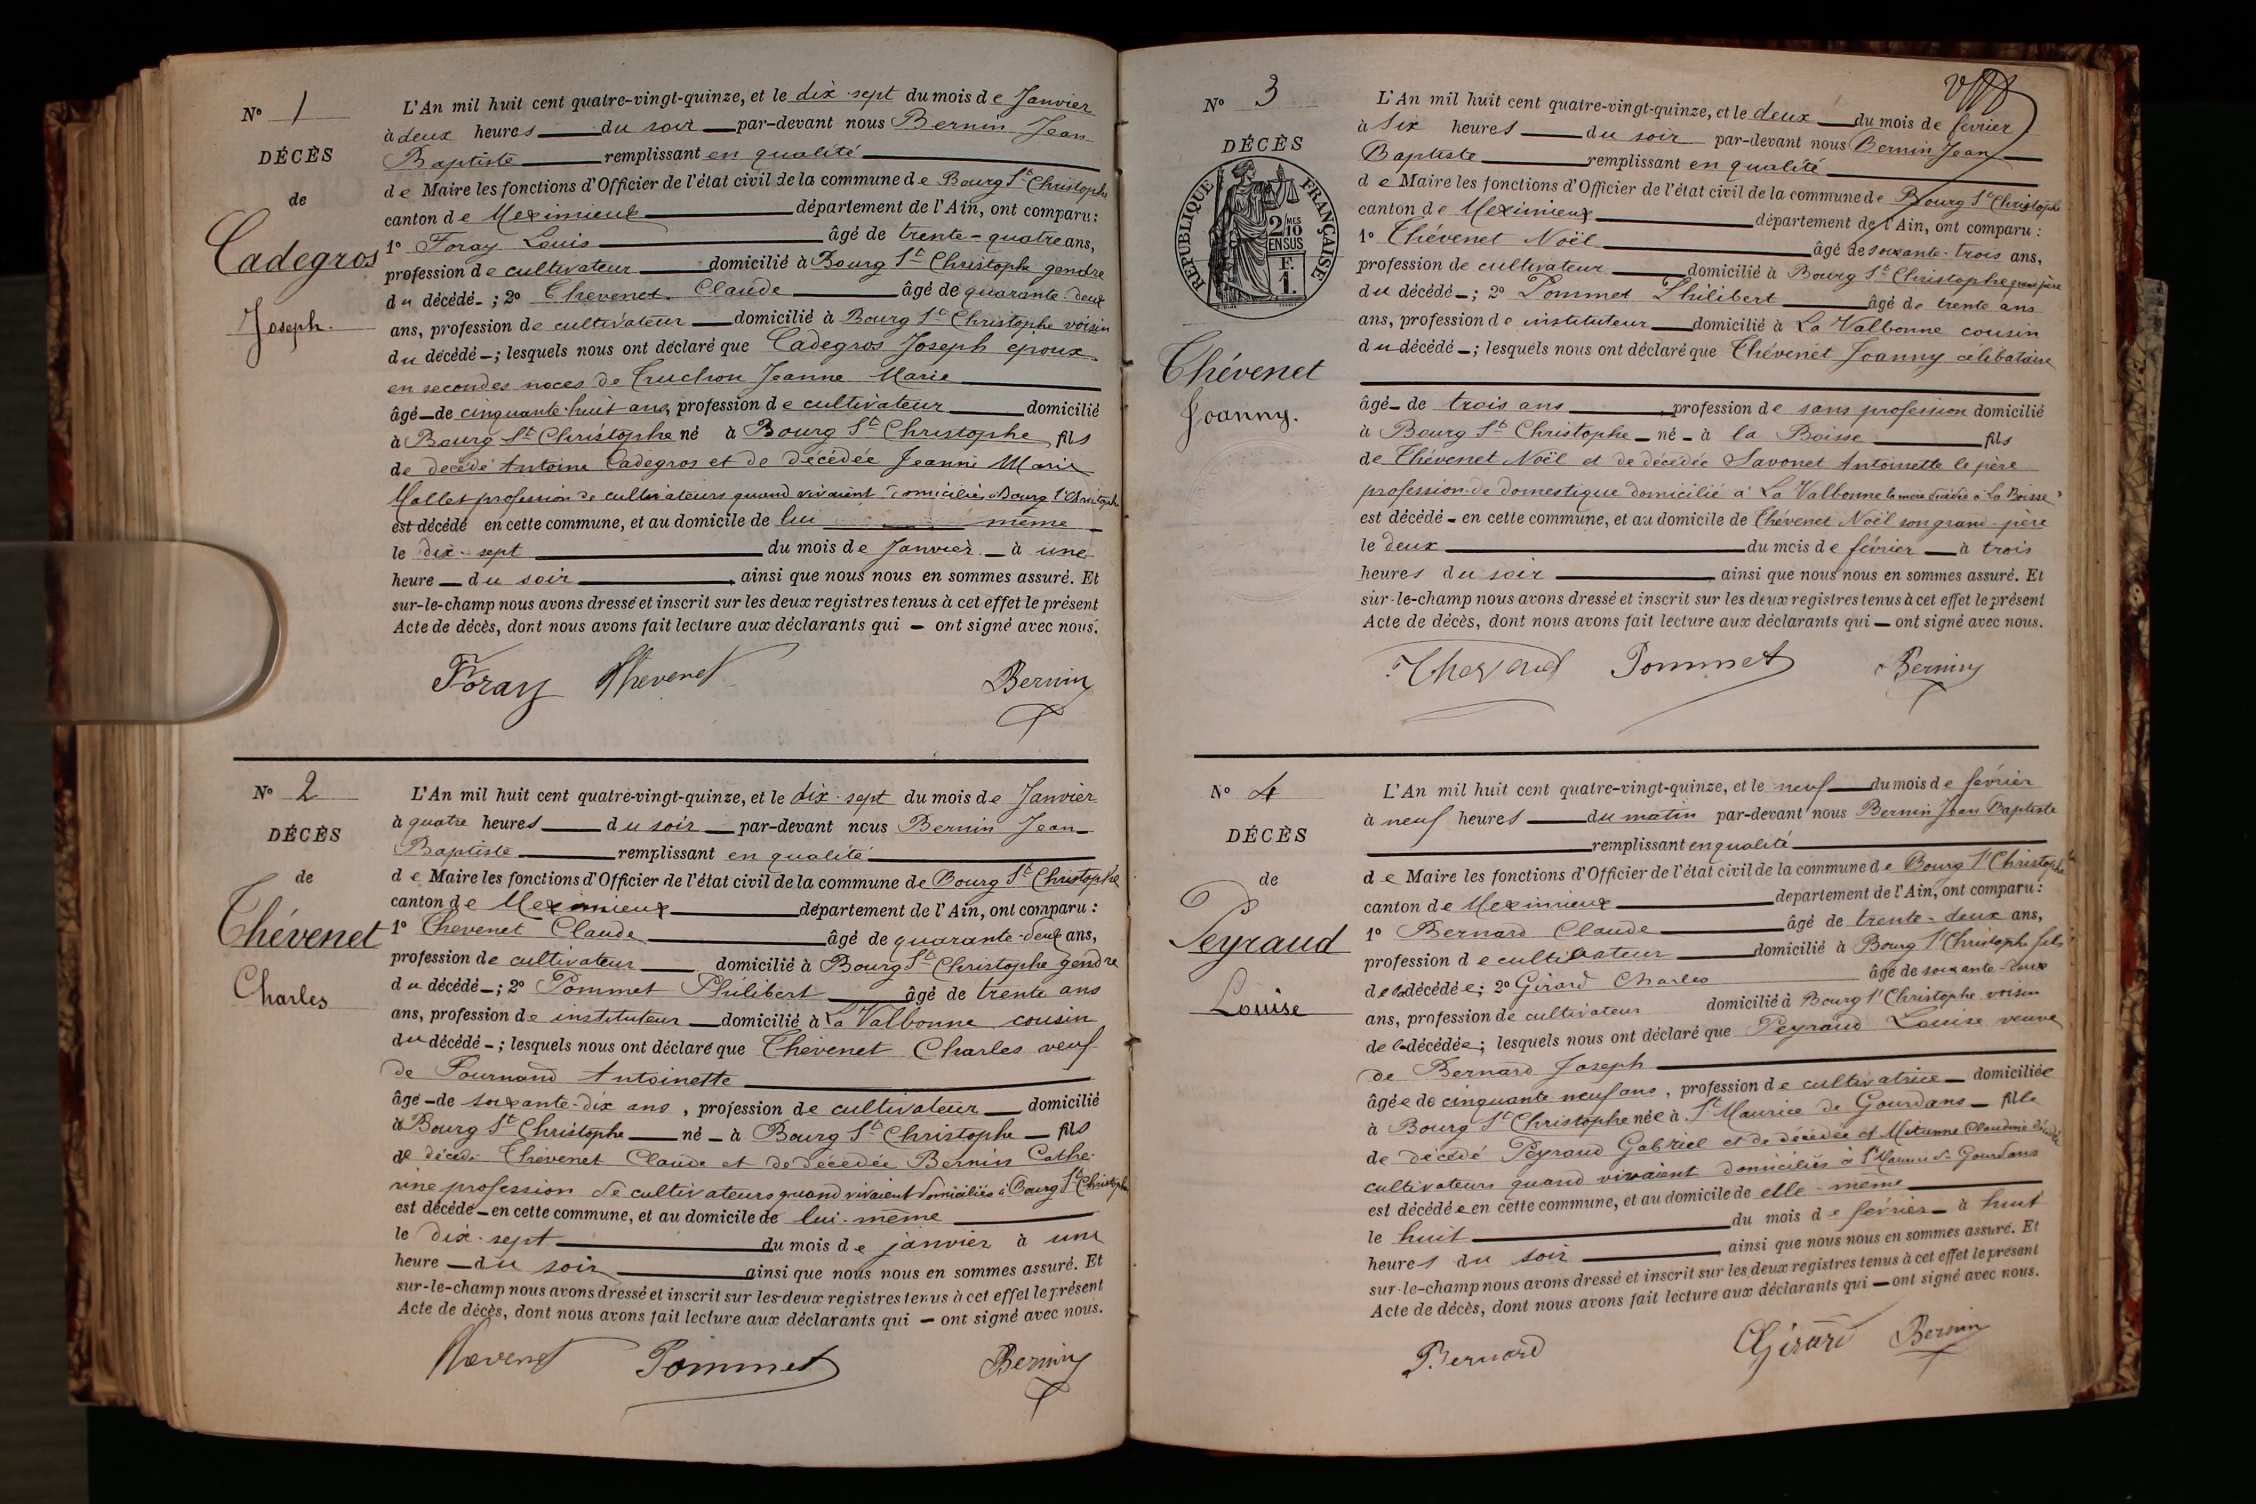 N° 1
DÉCÈS
de
Cadegros
Joseph.
L'An mil huit cent quatre-vingt-quinze, et le dix-sept du mois de Janvier
à deux heures du soir par-devant nous Bernin Jean
Baptiste remplissant en qualité
de Maire les fonctions d'Officier de l'état civil de la commune de Bourg St Christophe
canton de Meximieux département de l'Ain, ont comparu :
1° Foray Louis âgé de trente-quatre ans,
profession de cultivateur domicilié à Bourg St Christophe gendre
du décédé ; 2° Thevenet Claude âgé de quarante-deux
ans, profession de cultivateur domicilié à Bourg St Christophe voisin
du décédé ; lesquels nous ont déclaré que Cadegros Joseph époux
en secondes noces de Truchon Jeanne Marie
âgé de cinquante-huit ans, profession de cultivateur domicilié
à Bourg St Christophe né à Bourg St Christophe fils
de décédé Antoine Cadegros et de décédée Jeanne Marie
Mallet profession de cultivateurs quand vivaient domiciliés à Bourg St Christophe
est décédé en cette commune, et au domicile de lui même
le dix-sept du mois de Janvier à une
heure du soir ainsi que nous nous en sommes assuré. Et
sur-le-champ nous avons dressé et inscrit sur les deux registres tenus à cet effet le présent
Acte de décès, dont nous avons fait lecture aux déclarants qui ont signé avec nous.
Foray Thevenet Bernin
N° 2
DÉCÈS
de
Thévenet
Charles
L'An mil huit cent quatre-vingt-quinze, et le dix-sept du mois de Janvier
à quatre heures du soir par-devant nous Bernin Jean
Baptiste remplissant en qualité
de Maire les fonctions d'Officier de l'état civil de la commune de Bourg St Christophe
canton de Meximieux département de l'Ain, ont comparu :
1° Thevenet Claude âgé de quarante-deux ans,
profession de cultivateur domicilié à Bourg St Christophe gendre
du décédé ; 2° Pommet Philibert âgé de trente ans
ans, profession de instituteur domicilié à La Valbonne cousin
du décédé ; lesquels nous ont déclaré que Thévenet Charles veuf
de Fournand Antoinette
âgé de soixante-dix ans, profession de cultivateur domicilié
à Bourg St Christophe né à Bourg St Christophe fils
de décédé Thévenet Claude et de décédée Bernin Cathe-
rine profession de cultivateurs quand vivaient domiciliés à Bourg St Christophe
est décédé en cette commune, et au domicile de lui-même
le dix-sept du mois de janvier à une
heure du soir ainsi que nous nous en sommes assuré. Et
sur-le-champ nous avons dressé et inscrit sur les deux registres tenus à cet effet le présent
Acte de décès, dont nous avons fait lecture aux déclarants qui ont signé avec nous.
Thevenet Pommet Bernin
N° 3
DÉCÈS
RÉPUBLIQUE FRANÇAISE
2 MES
10
EN SUS
F.
1.
Thévenet
Joanny.
L'An mil huit cent quatre-vingt-quinze, et le deux du mois de février
à six heures du soir par-devant nous Bernin Jean
Baptiste remplissant en qualité
de Maire les fonctions d'Officier de l'état civil de la commune de Bourg St Christophe
canton de Meximieux département de l'Ain, ont comparu :
1° Thévenet Noël âgé de soixante-trois ans,
profession de cultivateur domicilié à Bourg St Christophe grand père
du décédé ; 2° Pommet Philibert âgé de trente ans
ans, profession de instituteur domicilié à La Valbonne cousin
du décédé ; lesquels nous ont déclaré que Thévenet Joanny célibataire
âgé de trois ans profession de sans profession domicilié
à Bourg St Christophe né à la Boisse fils
de Thévenet Noël et de décédée Savonet Antoinette le père
profession de domestique domicilié à La Valbonne la mère décédée à La Boisse
est décédé en cette commune, et au domicile de Thévenet Noël son grand-père
le deux du mois de février à trois
heures du soir ainsi que nous nous en sommes assuré. Et
sur-le-champ nous avons dressé et inscrit sur les deux registres tenus à cet effet le présent
Acte de décès, dont nous avons fait lecture aux déclarants qui ont signé avec nous.
Pommet Bernin
N° 4
DÉCÈS
de
Peyraud
Louise
L'An mil huit cent quatre-vingt-quinze, et le neuf du mois de février
à neuf heures du matin par-devant nous Bernin Jean Baptiste
remplissant en qualité
de Maire les fonctions d'Officier de l'état civil de la commune de Bourg St Christophe
canton de Meximieux département de l'Ain, ont comparu :
1° Bernard Claude âgé de trente-deux ans,
profession de cultivateur domicilié à Bourg St Christophe fils
de la décédée ; 2° Girard Charles âgé de soixante-deux
ans, profession de cultivateur domicilié à Bourg St Christophe voisin
de la décédée ; lesquels nous ont déclaré que Peyraud Louise veuve
de Bernard Joseph
âgée de cinquante neuf ans, profession de cultivatrice domiciliée
à Bourg St Christophe née à St Maurice de Gourdans fille
de décédé Peyraud Gabriel et de décédée Claudine
cultivateurs quand vivaient domiciliés à St Maurice de Gourdans
est décédée en cette commune, et au domicile de elle-même
le huit du mois de février à huit
heures du soir ainsi que nous nous en sommes assuré. Et
sur-le-champ nous avons dressé et inscrit sur les deux registres tenus à cet effet le présent
Acte de décès, dont nous avons fait lecture aux déclarants qui ont signé avec nous.
Bernard Girard Bernin